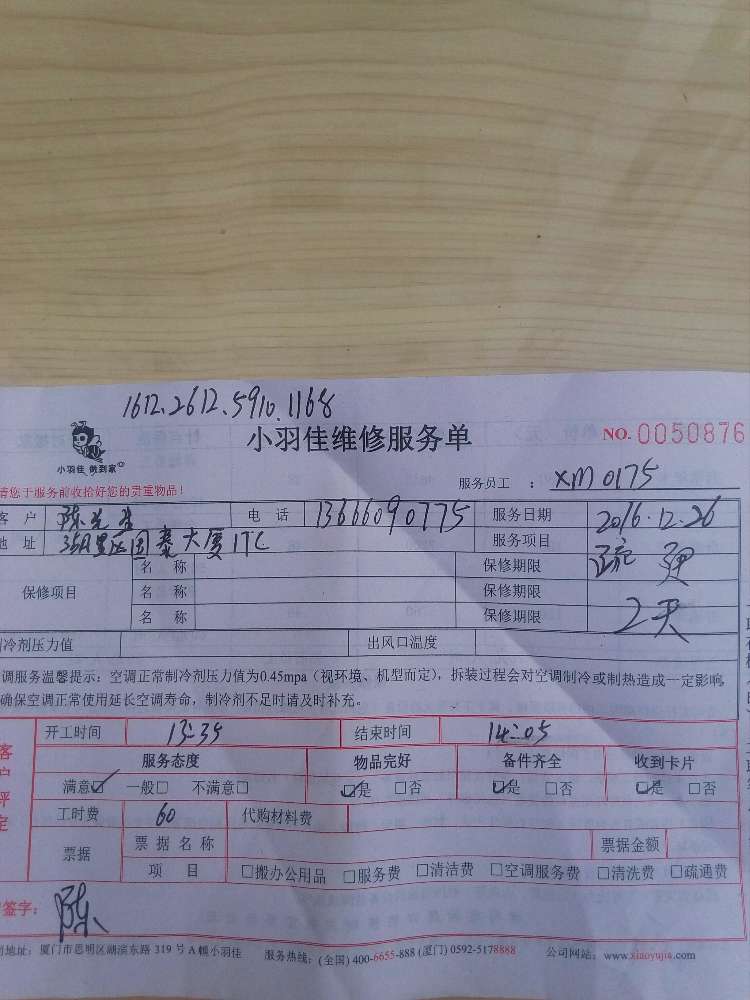 1612.2612.5910.1168
小羽佳 做到家
小羽佳维修服务单
NO. 0050876
请您于服务前收拾好您的贵重物品!
服务员工 : XM0175
客 户 陈先生 电 话 13666090775 服务日期 2016.12.26
地 址 国泰大厦17C 服务项目
保修项目 名 称 保修期限
名 称 保修期限
名 称 保修期限 2天
制冷剂压力值 出风口温度
调服务温馨提示:空调正常制冷剂压力值为0.45mpa(视环境、机型而定),拆装过程会对空调制冷或制热造成一定影响
确保空调正常使用延长空调寿命,制冷剂不足时请及时补充。
开工时间 13:35 结束时间 14:05
客户评定
服务态度 物品完好 备件齐全 收到卡片
满意☑ 一般□ 不满意□ ☑是 □否 ☑是 □否 ☑是 □否
工时费 60 代购材料费
票据 票 据 名 称 票据金额
项 目 □搬办公用品 □服务费 □清洁费 □空调服务费 □清洗费 □疏通费
签字: 陈
司地址:厦门市思明区湖滨东路 319 号 A 幢小羽佳 服务热线:(全国) 400-6655-888 (厦门) 0592-5178888 公司网站:www.xiaoyujia.com